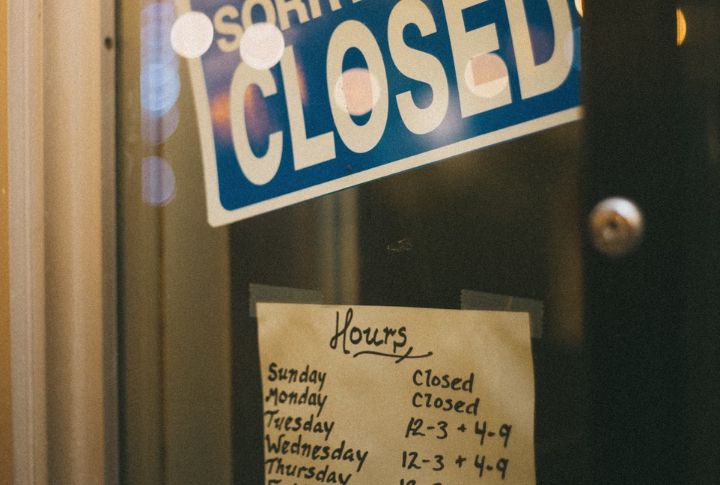 CLOSED
Hours
Sunday Closed
Monday Closed
Tuesday 12-3 + 4-9
Wednesday 12-3 + 4-9
Thursday